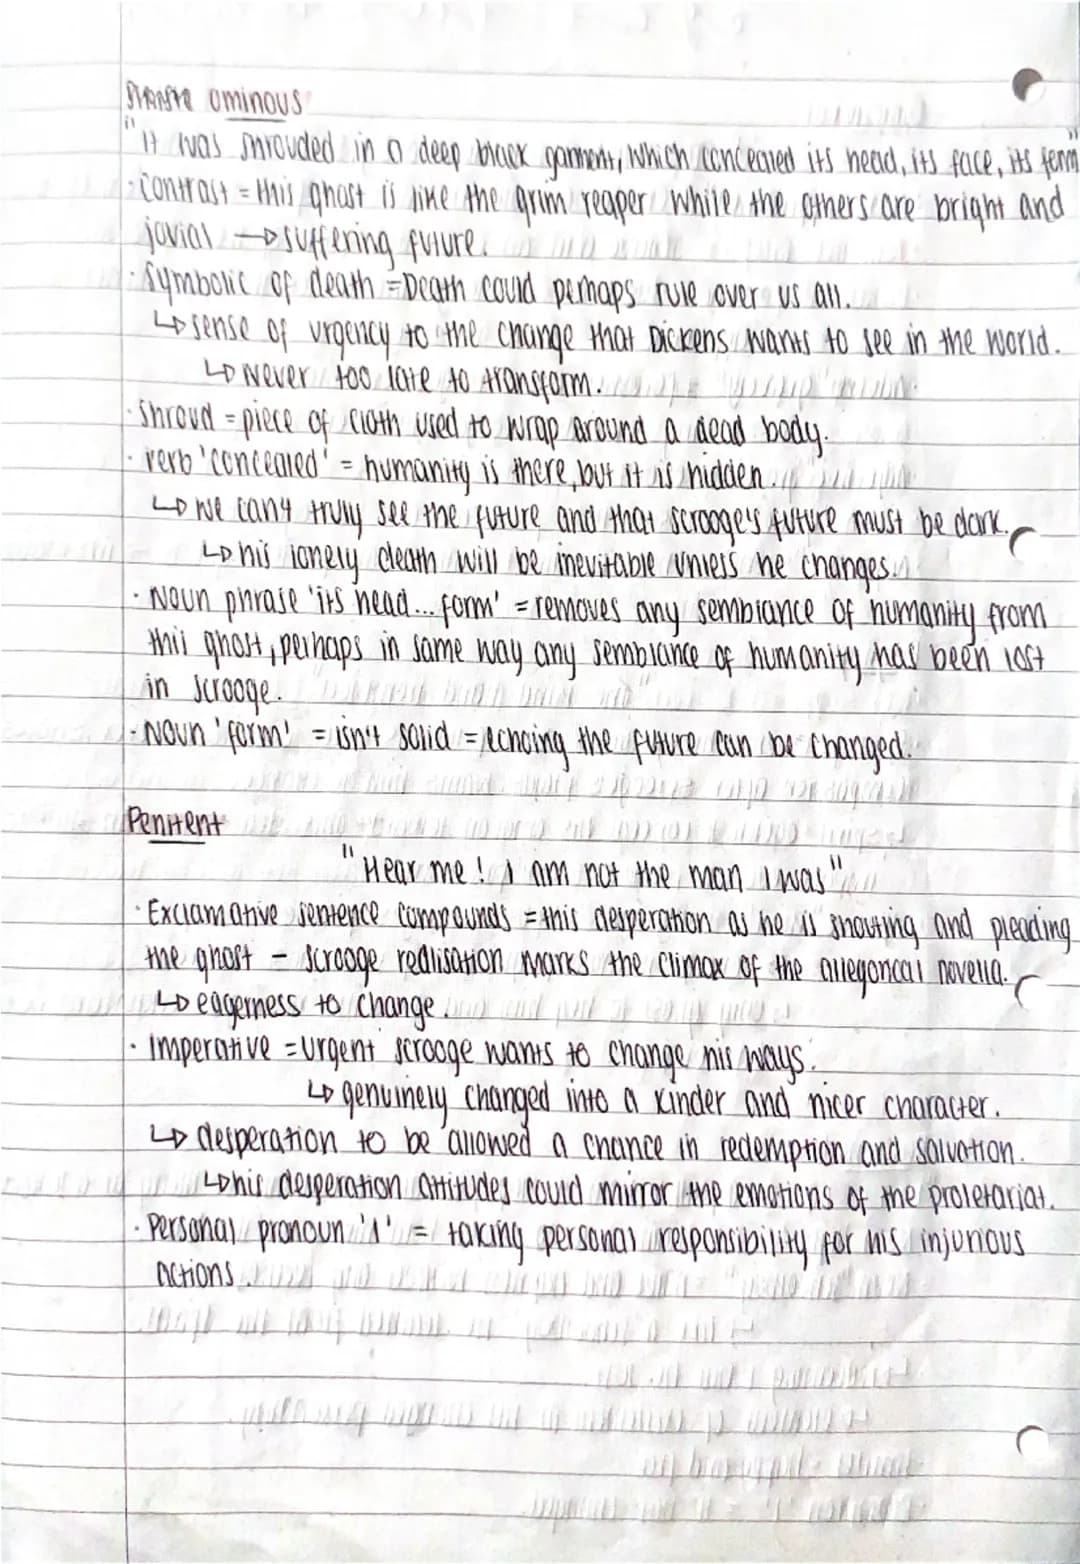 ominous
"It was shrouded in a deep black garment, which concealed its head, its face, its form"
· Contrast = this ghost is like the grim reaper while the others are bright and
jovial → suffering future.
· Symbolic of death = Death could perhaps rule over us all.
↳ sense of urgency to the change that Dickens wants to see in the world.
↳ Never too late to transform.
· Shroud = piece of cloth used to wrap around a dead body.
· verb 'concealed' = humanity is there, but it is hidden.
↳ we can't truly see the future and that scrooge's future must be dark.
↳ his lonely death will be inevitable unless he changes.
· Noun phrase 'its head... form' = removes any semblance of humanity from
this ghost, perhaps in same way any semblance of humanity has been lost
in scrooge.
· Noun 'form' = isn't solid = echoing the future can be changed.
Penitent
"Hear me! I am not the man I was"
· Exclamative sentence compounds = this desperation as he is shouting and pleading
the ghost - scrooge realisation marks the climax of the allegorical novella.
↳ eagerness to change.
· Imperative = urgent scrooge wants to change his ways.
↳ genuinely changed into a kinder and nicer character.
↳ desperation to be allowed a chance in redemption and salvation.
↳ his desperation attitudes could mirror the emotions of the proletariat.
· Personal pronoun 'I' = taking personal responsibility for his injurious
actions.